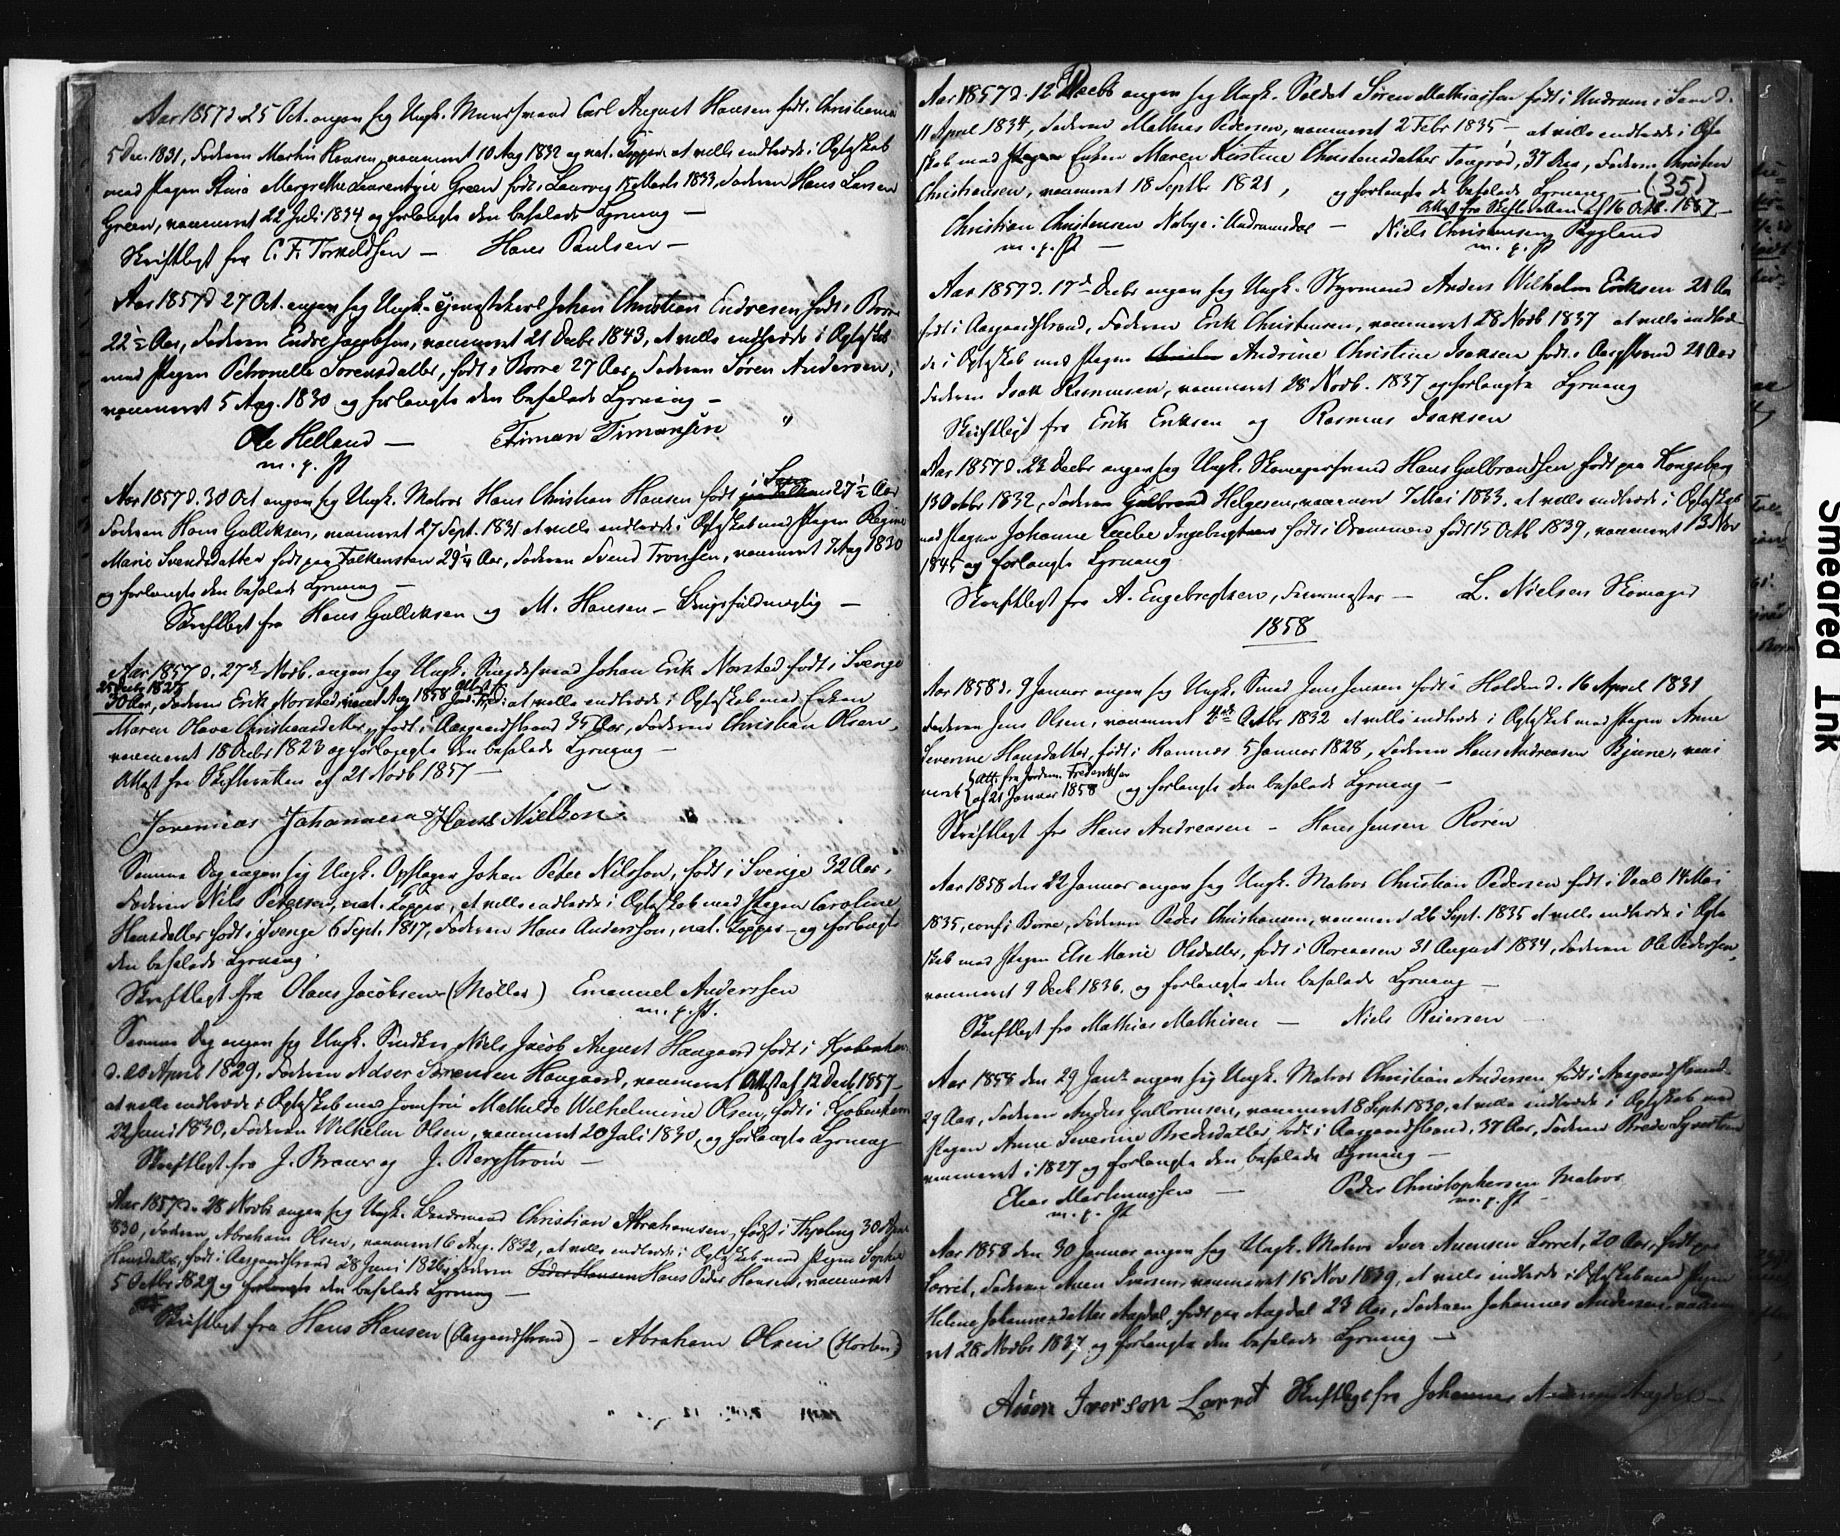 Aar 1857 d. 25 Oct. angav sig Ungk. Muursvend Carl August Hansen født i Christiania
5 Dec. 1831, Faderen Martin Hansen, vaccineret 10 Aug 1832 og nat. Kopper at ville indtræde i Ægteskab
med Pigen Margrethe Laurentzie Green født i Laurvig 15 Marts 1833, Faderen Hans Larsen
Green, vaccineret 22 Juli 1834 og forlangte den befalede Lysning —
Skriftligt fra C. F. Torkeldsen — Hans Paulsen —
Aar 1857 d 27 Oct. angav sig Ungk. Tjenestekarl Johan Christian Endresen født i Borre
22½ Aar, Faderen Endre Jacobsen, vaccineret 21 Decbr 1843, at ville indtræde i Ægteskab
med Pigen Petronelle Sørensdatter, født i Borre 27 Aar, Faderen Søren Andersen,
vaccineret 5 Aug. 1830 og forlangte den befalede Lysning —
Ole Helland — Timan Timansen "
m. p. P
Aar 1857 d. 30 Oct angav sig Ungk. Matros Hans Christian Hansen født i 27½ Aar
Faderen Hans Gulliksen, vaccineret 27 Sept. 1831 at ville indtræde i Ægteskab med Pigen Regine
Marie Svendsdatter født paa Falkensten 29¼ Aar, Faderen Svend Tronsen, vaccineret 7 Aug 1830
og forlangte den befalede Lysning —
Skriftligt fra Hans Gulliksen og M. Hansen — Brugsfuldmægtig —
Aar 1857 d. 27de Novb. angav sig Ungk. Smedesvend Johan Erik Norsted født i Sverige
30 Aar, Faderen Erik Norsted, at ville indtræde i Ægteskab med Enken
Maren Olava Christiansdatter, født i Aasgaardstrand 35 Aar, Faderen Christian Olsen,
vaccineret 18 Octbr 1823 og forlangte den befalede Lysning —
Attest fra Skifteretten af 21 Novb 1857 —
Joremias Johannesen Hans Nielsen
Samme Dag angav sig Ungk. Opslager Johan Peter Nilsson, født i Sverige 32 Aar,
Faderen Nils Petersen, nat. Kopper, at ville indtræde i Ægteskab med Pigen Caroline
Hansdatter født i Sverige 6 Sept. 1817, Faderen Hans Andersson, nat. Kopper — og forlangte
den befalede Lysning.
Skriftligt fra Olaus Jacobsen (Møller) Emanuel Anderssen
m. p. P.
Samme Dag angav sig Ungk. Snedker Niels Jacob August Haagaard født i Kjøbenhavn
d. 20 April 1829, Faderen Adser Sørensen Haagaard, vaccineret Attest af 12 Decb 1857 —
at ville indtræde i Ægteskab med Jomfru Mathilde Wilhelmine Olsen, født i Kjøbenhavn
22 Juni 1830, Faderen Wilhelm Olsen, vaccineret 20 Juli 1830, og forlangte Lysning
Skriftligt fra J. Braur og J. Bergstrøm —
Aar 1857 d. 28 Novbr angav sig Ungk. Christian Abrahamsen, født i Thjøling 30
1830, Faderen Abraham Olsen, vaccineret 6 Aug. 1832, at ville indtræde i Ægteskab med Pigen Sophie
Hansdatter, født i Aasgaardstrand 28 Juni 1826, Faderen Peder Hansen Hans Peder Hansen, vaccineret
5 Octbr 1829 og forlangte den befalede Lysning —
Skriftligt fra Hans Hansen (Aasgaardstrand) — Abraham Olsen (Horten)
Aar 1857 d. 12 Decbr angav sig Ungk. Soldat Søren Mathiassen født i Undrum i Sem d.
11 April 1834, Faderen Mathias Pedersen, vaccineret 2 Febr 1835 — at ville indtræde i Ægte
skab med Pigen Enken Maren Kirstine Christensdatter 37 Aar, Faderen Christen
Christensen, vaccineret 18 Septbr 1821, og forlangte de befalede Lysning — (35)
Attest fra Skifteretten af 16 Octb. 1857 —
Christian Christensen Nøbye i Undrumsdal — Niels Christensen Rygland
m. p. P — m. p. P
Aar 1857 d. 17de Decbr angav sig Ungk. Styrmand Anders Wilhelm Eriksen 21 Aar
født i Aasgaardstrand, Faderen Erik Christensen, vaccineret 28 Novb 1837 at ville indtræ-
de i Ægteskab med Pigen Andrine Christine Isaksen født i Aasgstrand 21 Aar
Faderen Isak Rasmusen, vaccineret 28 Novb. 1837 og forlangte Lysning
Skriftligt fra Erik Eriksen og Rasmus Isaksen
Aar 1857 d. 22 Decbr angav sig Ungk. Skomagersvend Hans Gulbrandsen, født paa Kongsberg
13 Octbr 1832, Faderen Gulbrand Helgesen, vaccineret 7 Mai 1833, at ville indtræde i Ægteskab
med Pigen Johanne Ingebrigtsen født i Drammen født 15 Octb 1839, vaccineret 13 Nov
1845 og forlangte Lysning
Skriftligt fra A. Engebregtsen, — L. Nielsen Skomager
1858
Aar 1858 d. 9 Januar angav sig Ungk. Smed Jens Jensen født i Holden d. 16 April 1831
Faderen Jens Olsen, vaccineret 4de Octbr 1832 at ville indtræde i Ægteskab med Pigen Anne
Severine Hansdatter, født i Ramnæs 5 Januar 1828, Faderen Hans Andreasen Bjune, vacci
neret {Att. fra Jordm. Frederiksen af 21 Januar 1858 og forlangte den befalede Lysning —
Skriftligt fra Hans Andreasen — Hans Jensen Roren
Aar 1858 den 22 Januar angav sig Ungk. Matros Christian Pedersen født i Vaal 14 Mai
1835, conf. i Borre, Faderen Peder Christiansen, vaccineret 26 Sept. 1835 at ville indtræde i Ægte
skab med Pigen Else Marie Olsdatter, født i Roraasen 31 August 1834, Faderen Ole Pedersen,
vaccineret 9 Decb 1836, og forlangte den befalede Lysning —
Skriftligt fra Mathias Mathisen — Niels Reiersen —
Aar 1858 den 29 Januar angav sig Ungk. Matros Christian Andersen født i Aasgaardstrand
29 Aar, Faderen Anders Gullormsen, vaccineret 8 Sept 1830, at ville indtræde i Ægteskab med
Pigen Anne Severine Bredesdatter født i Aasgaardstrand, 37 Aar, Faderen Brede Syvertsen
vaccineret i 1827 og forlangte den befalede Lysning —
Elias Martinussen — Peder Christophersen Matros
m. p. P m. p. P —
Aar 1858 den 30 Januar angav sig Ungk. Matros Iver Auensen Lorret, 20 Aar, født paa
Lorret, Faderen Auen Iversen, vaccineret 15 Nov 1839, at ville indtræde i Ægteskab med Pigen
Helene Johannesdatter Aagdal, født paa Aagdal 23 Aar, Faderen Johannes Andersen, vaccine
ret 28 Novbr 1837 og forlangte den befalede Lysning —
Auen Iverson Lorret Skriftligt fra Johannes Andersen Aagdal —
Smeared Ink